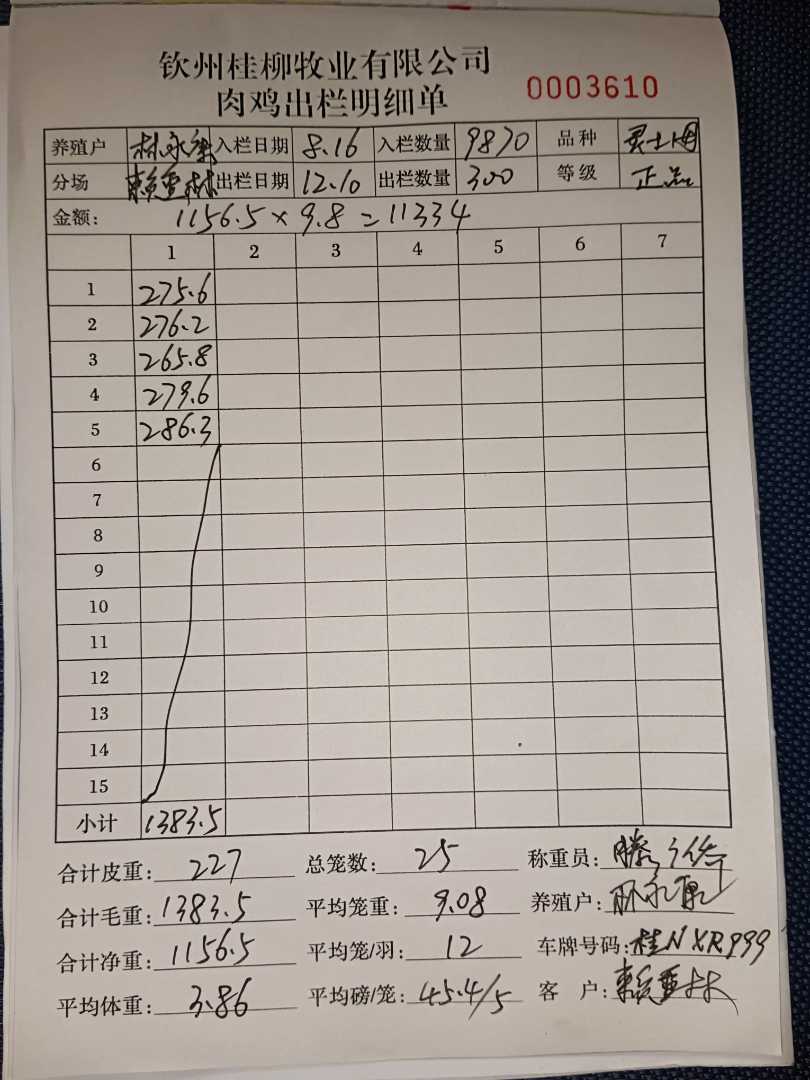 钦州桂柳牧业有限公司
肉鸡出栏明细单 0003610
养殖户 林永 入栏日期 8.16 入栏数量 9870 品种 灵土
分场 赖重林 出栏日期 12.10 出栏数量 300 等级 正品
金额: 1156.5 × 9.8 = 11334
1 2 3 4 5 6 7
1 275.6
2 276.2
3 265.8
4 279.6
5 286.3
6
7
8
9
10
11
12
13
14
15
小计 1383.5
合计皮重: 227 总笼数: 25 称重员: 滕
合计毛重: 1383.5 平均笼重: 9.08 养殖户: 林永
合计净重: 1156.5 平均笼/羽: 12 车牌号码: 桂NXR999
平均体重: 3.86 平均磅/笼: 45.4/5 客 户: 赖重林